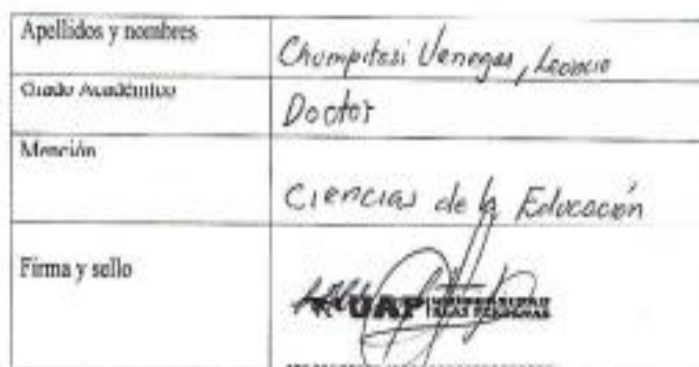 Apellidos y nombres
Chumpitasi Venegas, Leoncio
Grado Académico
Doctor
Mención
Ciencias de la Educación
Firma y sello
UAP UNIVERSIDAD
ALAS PERUANAS